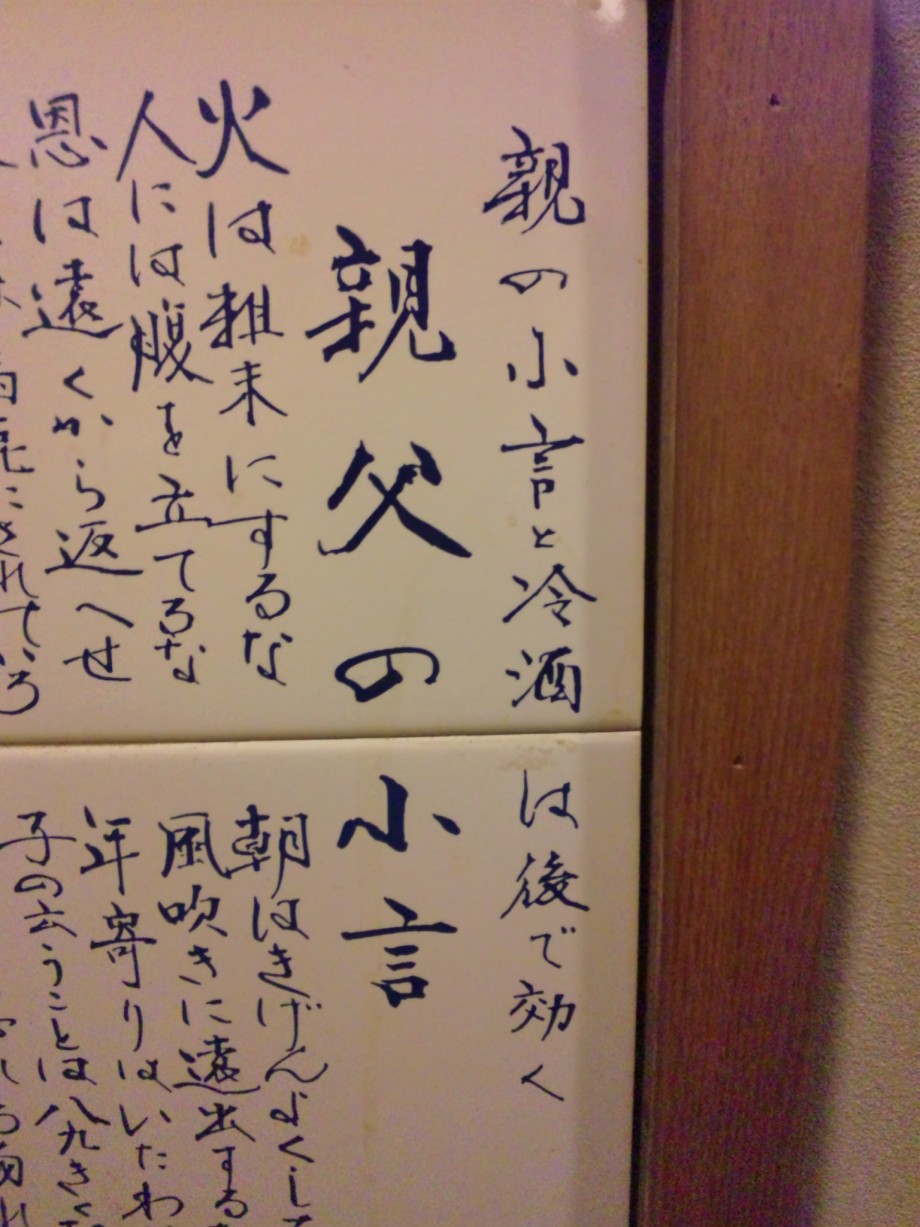 親の小言と冷酒は後で効く
親父の小言
火は粗末にするな
人には腹を立てるな
恩は遠くから返へせ
朝はきげんよくし
風吹きに遠出する
年寄りはいたわ
子の云うことは八九きく